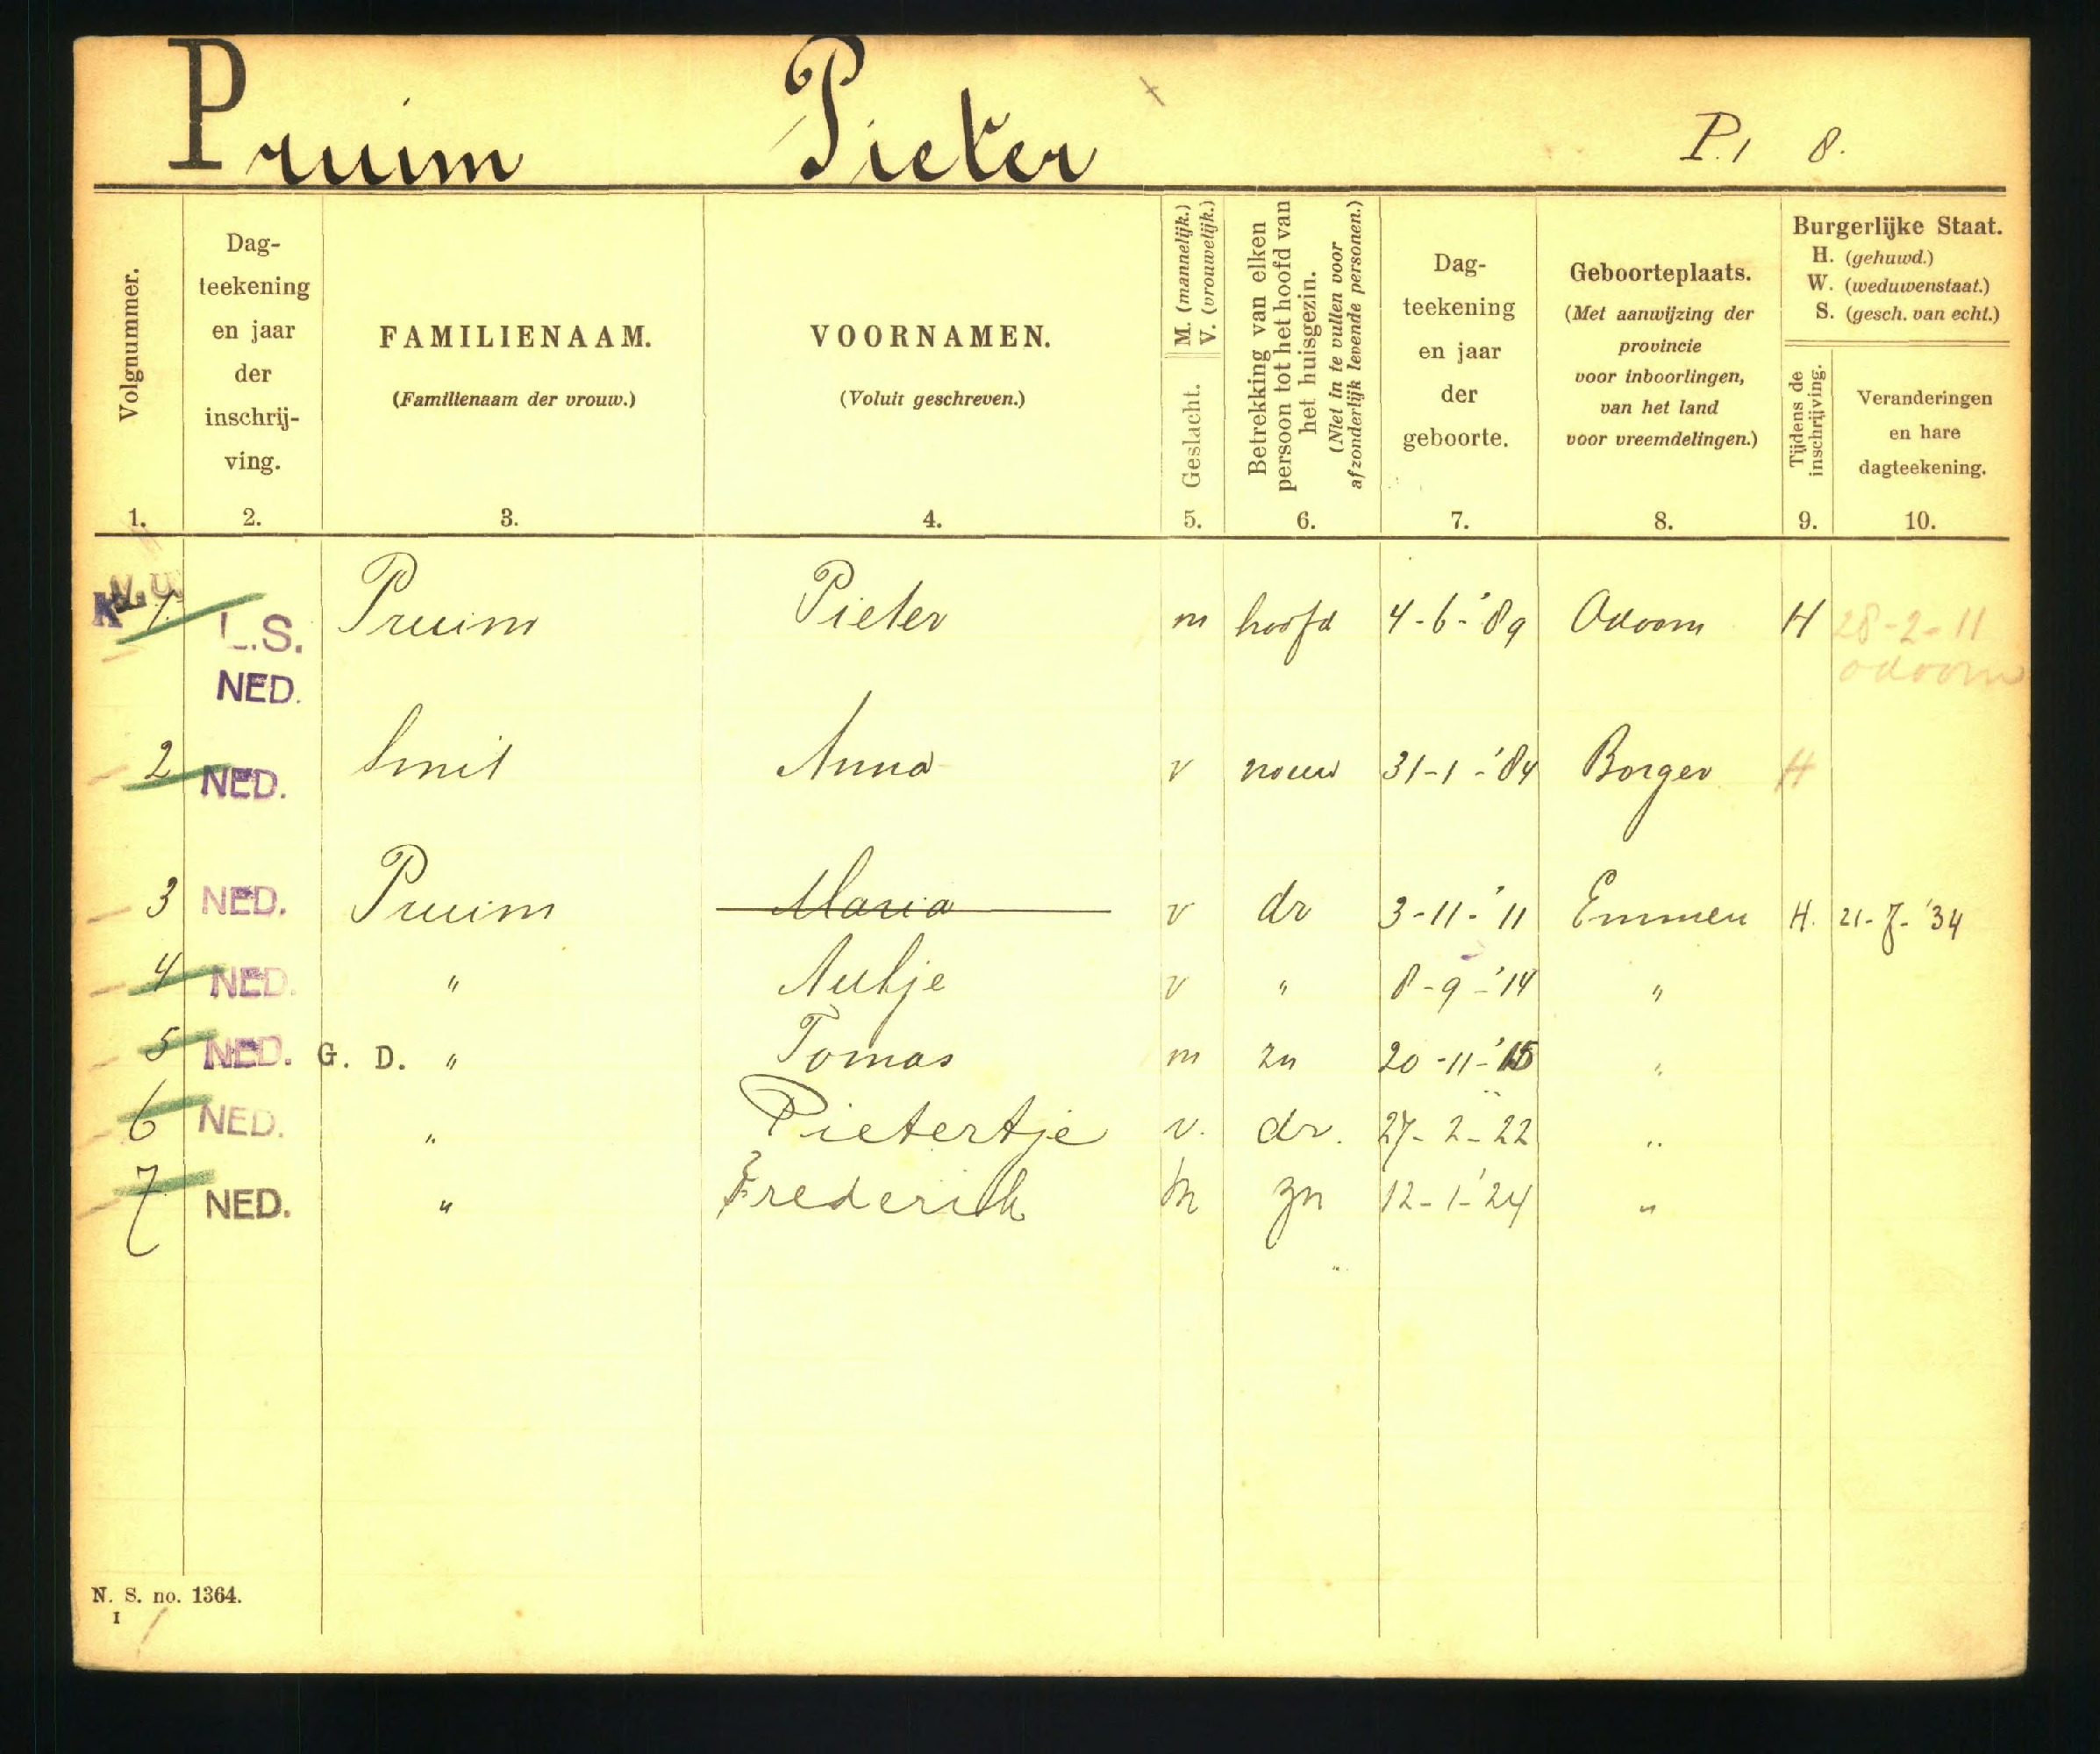 Pruim Pieter P.1 8.
Volgnummer.
1.
Dag-
teekening
en jaar
der
inschrij-
ving.
2.
FAMILIENAAM.
(Familienaam der vrouw.)
3.
VOORNAMEN.
(Voluit geschreven.)
4.
M. (mannelijk.)
V. (vrouwelijk.)
Geslacht.
5.
Betrekking van elken
persoon tot het hoofd van
het huisgezin.
(Niet in te vullen voor
afzonderlijk levende personen.)
6.
Dag-
teekening
en jaar
der
geboorte.
7.
Geboorteplaats.
(Met aanwijzing der
provincie
voor inboorlingen,
van het land
voor vreemdelingen.)
8.
Burgerlijke Staat.
H. (gehuwd.)
W. (weduwenstaat.)
S. (gesch. van echt.)
Tijdens de
inschrijving.
9.
Veranderingen
en hare
dagteekening.
10.
K
1. L.S. Pruim Pieter m hoofd 4-6-'89 Odoorn H 28-2-11
NED. odoorn
2 NED. Smit Anna v vrouw 31-1-'84 Borger H
3 NED. Pruim Maria v dr 3-11-'11 Emmen H. 21-7-'34
4 NED. " v " 8-9-'14 "
5 NED. G. D. " Tomas m zn 20-11-'15 "
6 NED. " Pietertje v. dr. 27-2-22 "
7 NED. " Frederik m zn 12-1-'24 "
N. S. no. 1364.
I